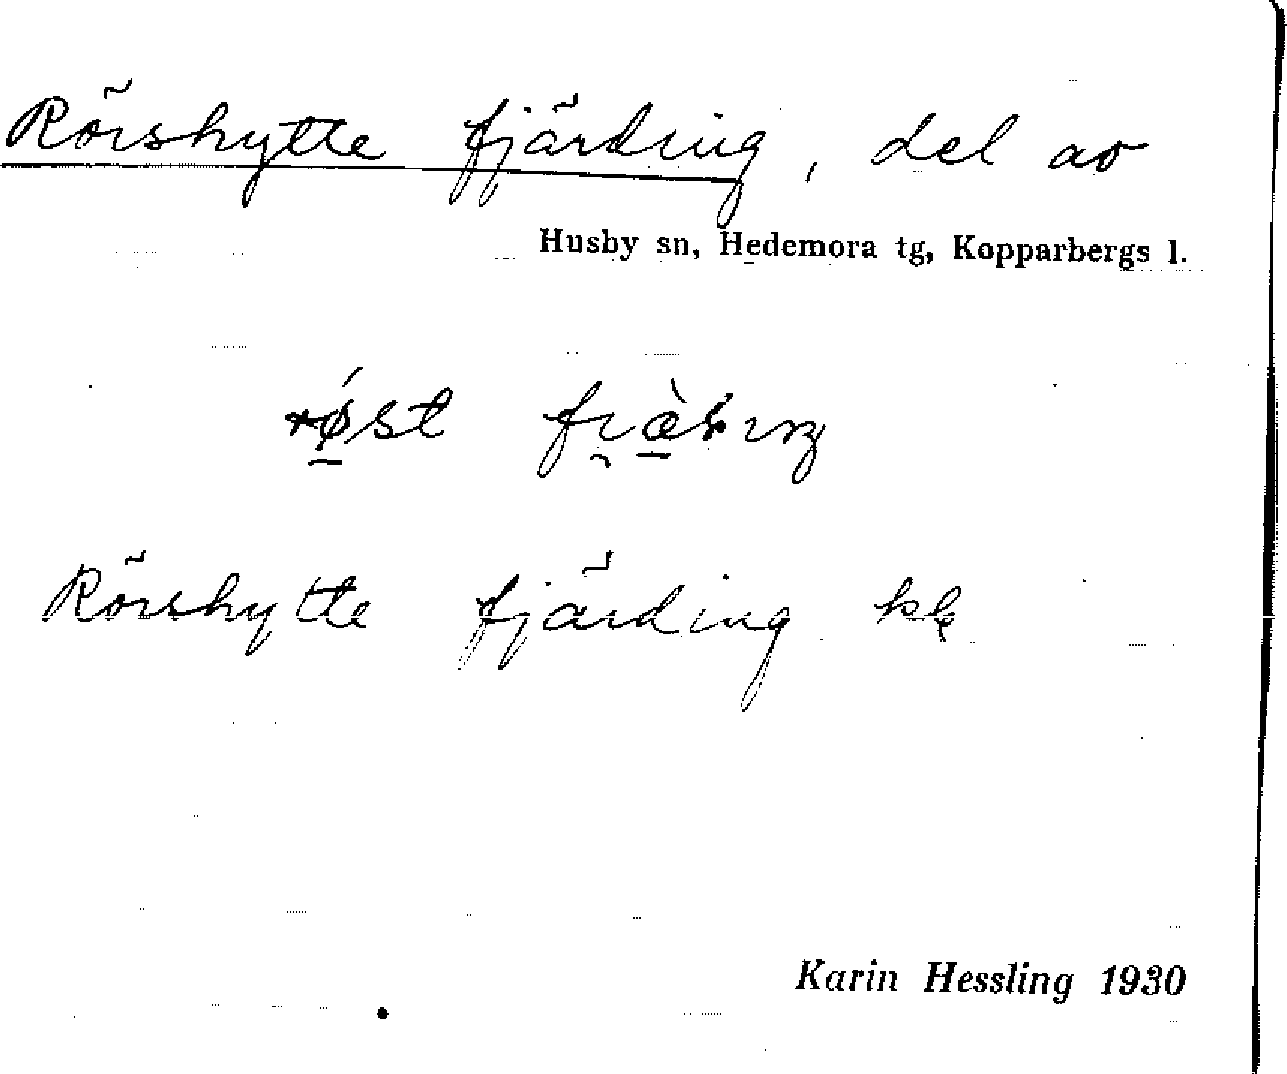 Rörshytte fjärding, del av
Husby sn, Hedemora tg, Kopparbergs l.
Rörshytte fjärding
Karin Hessling 1930